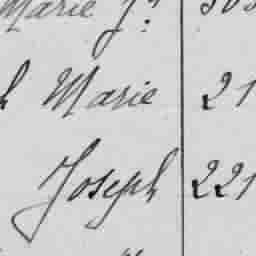 Marie J.
Marie 21
Joseph 221